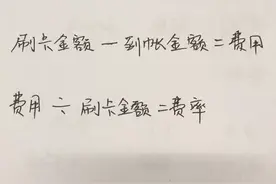 刷卡金额－到帐金额＝费用
费用÷刷卡金额＝费率